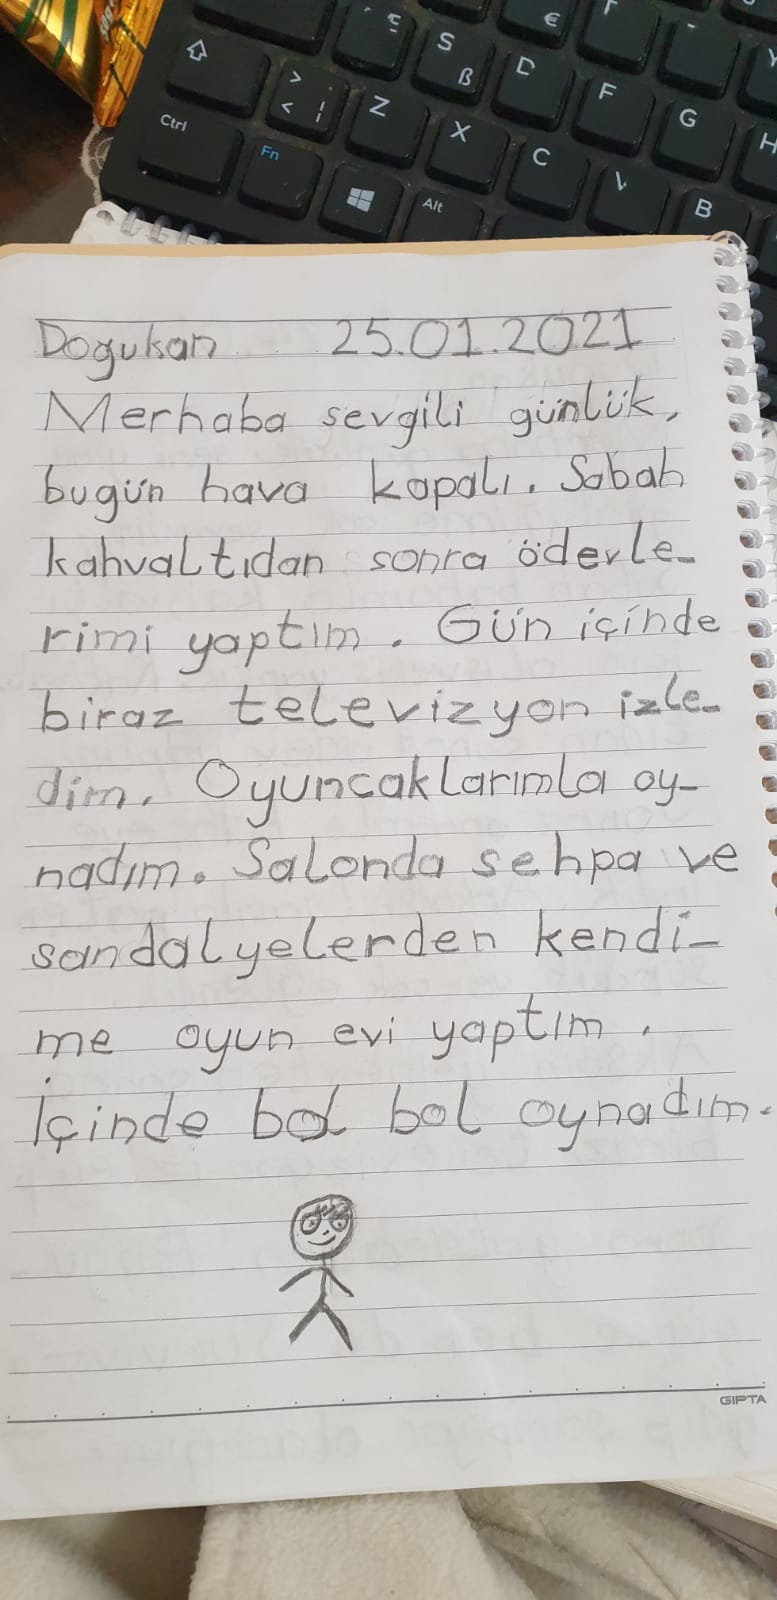 S
ß
€
D
F
G
H
Ctrl
Fn
Z
X
C
V
B
Alt
Doğukan 25.01.2021
Merhaba sevgili günlük,
bugün hava kapalı. Sabah
kahvaltıdan sonra ödevle-
rimi yaptım. Gün içinde
biraz televizyon izle-
dim. Oyuncaklarımla oy-
nadım. Salonda sehpa ve
sandalyelerden kendi-
me oyun evi yaptım.
İçinde bol bol oynadım.
GIPTA